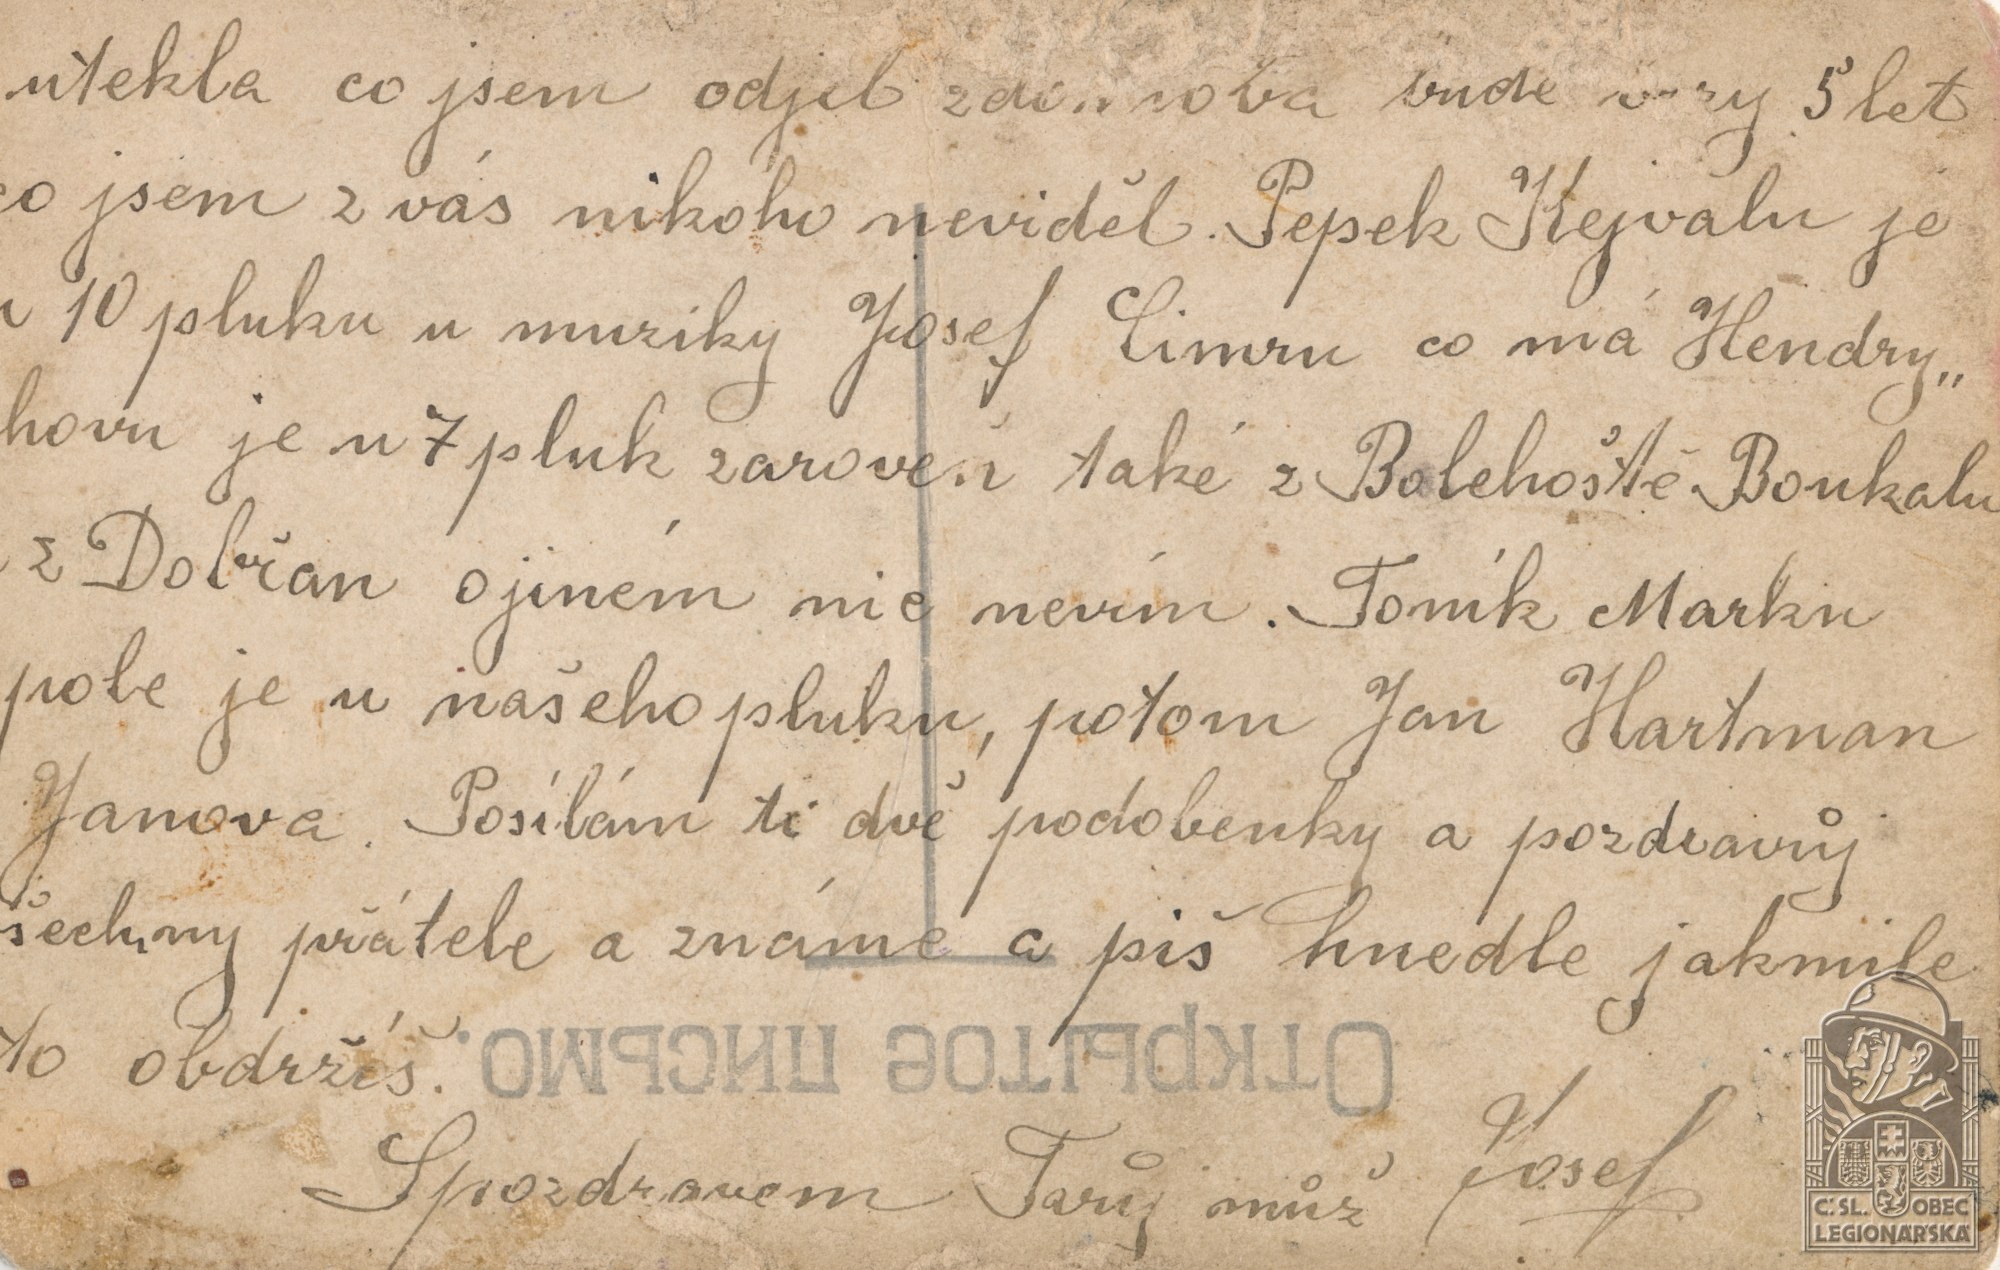 utekla co jsem odjel bude 5 let
co jsem z vás nikoho neviděl. Pepek Kejvalu je
u 10 pluku u muziky Josef Cimru co má Hendry„
hovu je u 7 pluk zaroveň také z Bolehoště Boukalu
z Dobřan o jiném nic nevím. Toník Marku
pole je u našeho pluku, potom Jan Hartman
Janova. Posílám ti dvě podobenky a pozdravůj
šechny přátele a známe a piš hnedle jakmile
to obdržíš.
Открытое письмо.
S pozdravem Tvůj můž Josef
Č. SL. OBEC
LEGIONÁŘSKÁ